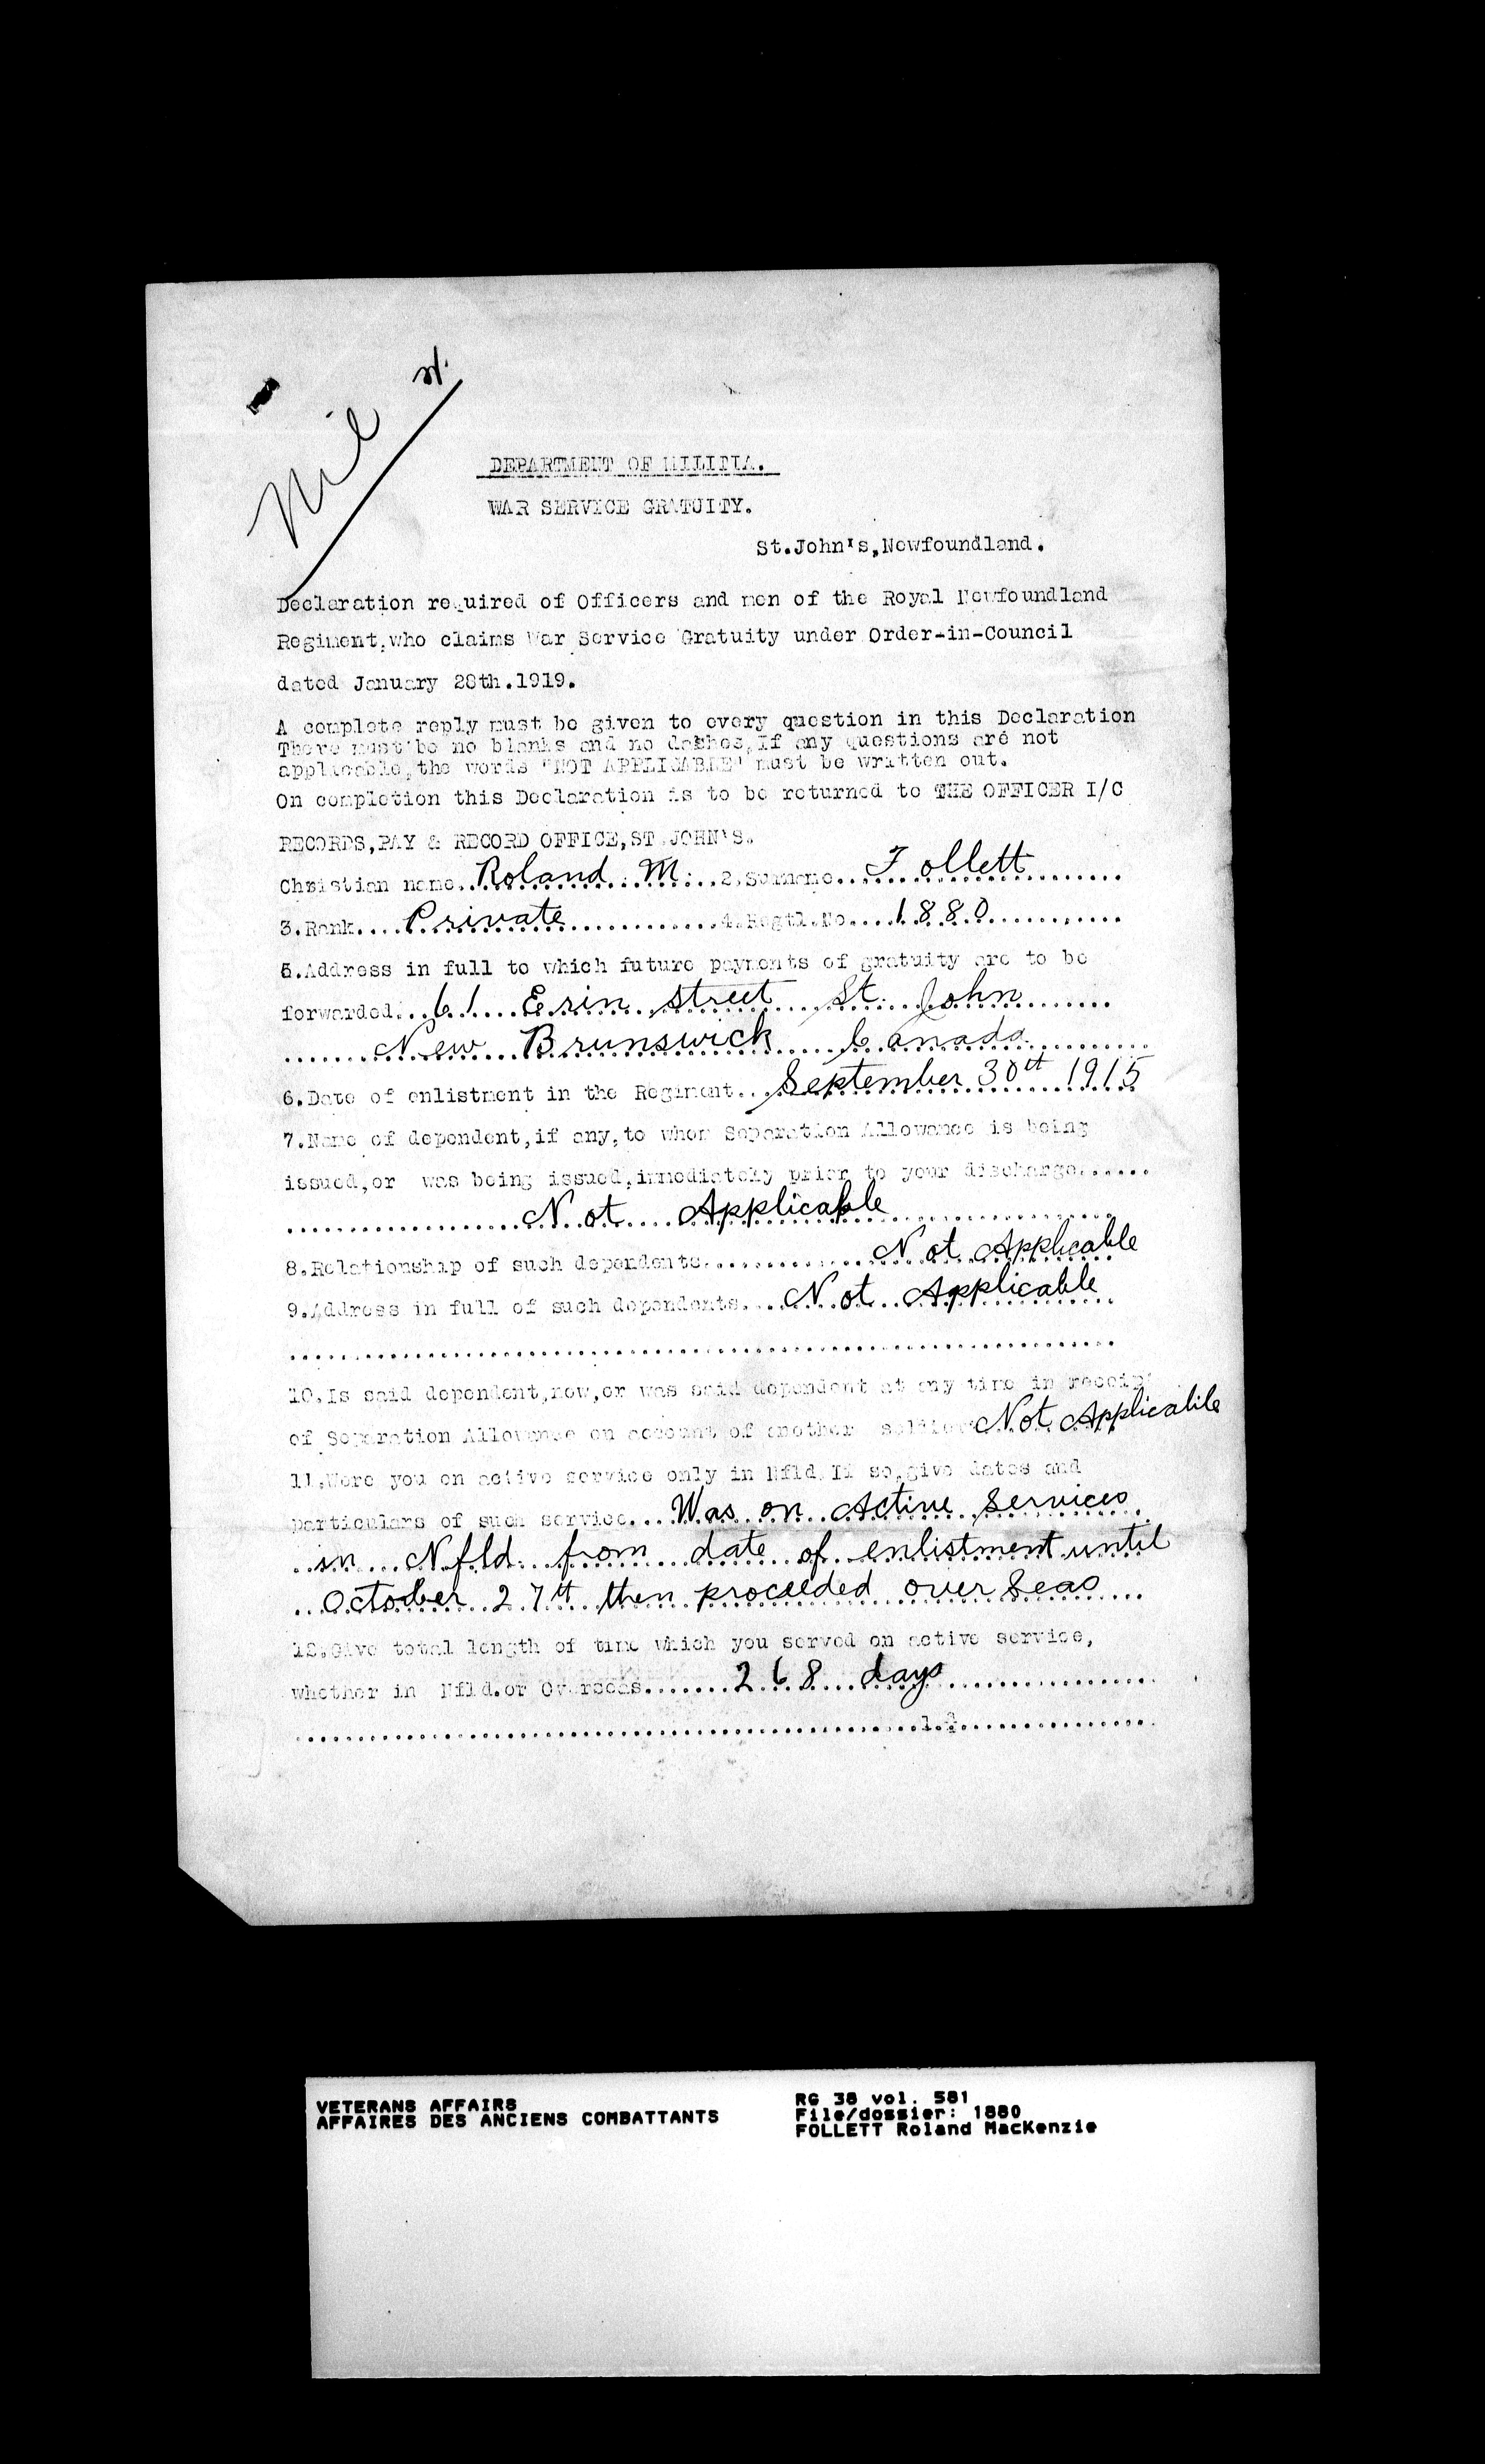 Nil
DEPARTMENT OF MILITIA.
WAR SERVICE GRATUITY.
St.John's,Newfoundland.
Declaration required of Officers and men of the Royal Newfoundland
Regiment,who claims War Service Gratuity under Order-in-Council
dated January 28th.1919.
A complete reply must be given to every question in this Declaration
There must be no blanks and no dashes,If any questions are not
applicable,the words "NOT APPLICABLE" must be written out.
On completion this Declaration is to be returned to THE OFFICER I/C
RECORDS,PAY & RECORD OFFICE,ST.JOHN'S.
Christian name..Roland M...2.Surname...Follett......
3.Rank....Private............4.Regtl.No....1880............
5.Address in full to which future payments of gratuity are to be
forwarded...61 Erin Street St. John......
......New Brunswick Canada............
6.Date of enlistment in the Regiment...September 30th 1915
7.Name of dependent,if any,to whom Separation Allowance is being
issued,or was being issued,immediately prior to your discharge......
..................Not Applicable..................
8.Relationship of such dependents..............Not Applicable
9.Address in full of such dependents....Not Applicable
..................................................................
10.Is said dependent,now,or was said dependent at any time in receipt
of Separation Allowance on account of another soldier Not Applicable
11.Were you on active service only in Nfld.If so,give dates and
particulars of such service...Was on Active Services
..in Nfld. from date of enlistment until
..October 27th then proceeded over Seas...
12.Give total length of time which you served on active service,
whether in Nfld.or Overseas.......268 days..................
..................................................................
VETERANS AFFAIRS
AFFAIRES DES ANCIENS COMBATTANTS
RG 38 vol. 581
File/dossier: 1880
FOLLETT Roland MacKenzie